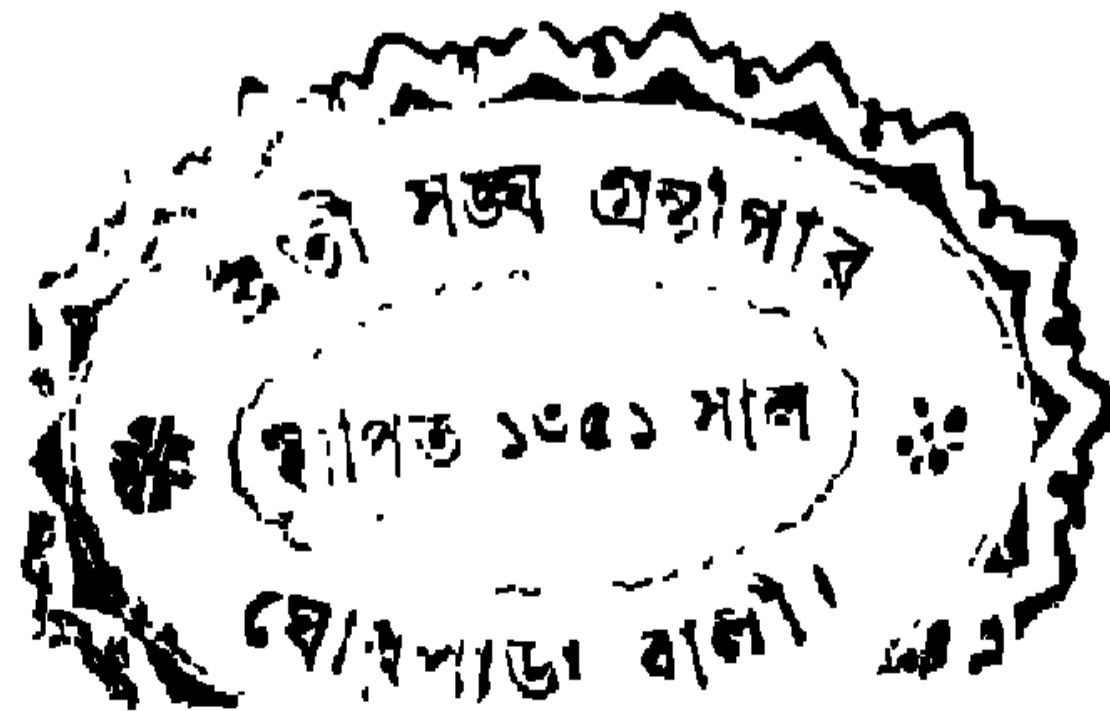 সঙ্ঘ গ্রন্থাগার
স্থাপিত ১৩৫১ সাল
ঘোষপাড়া বালী